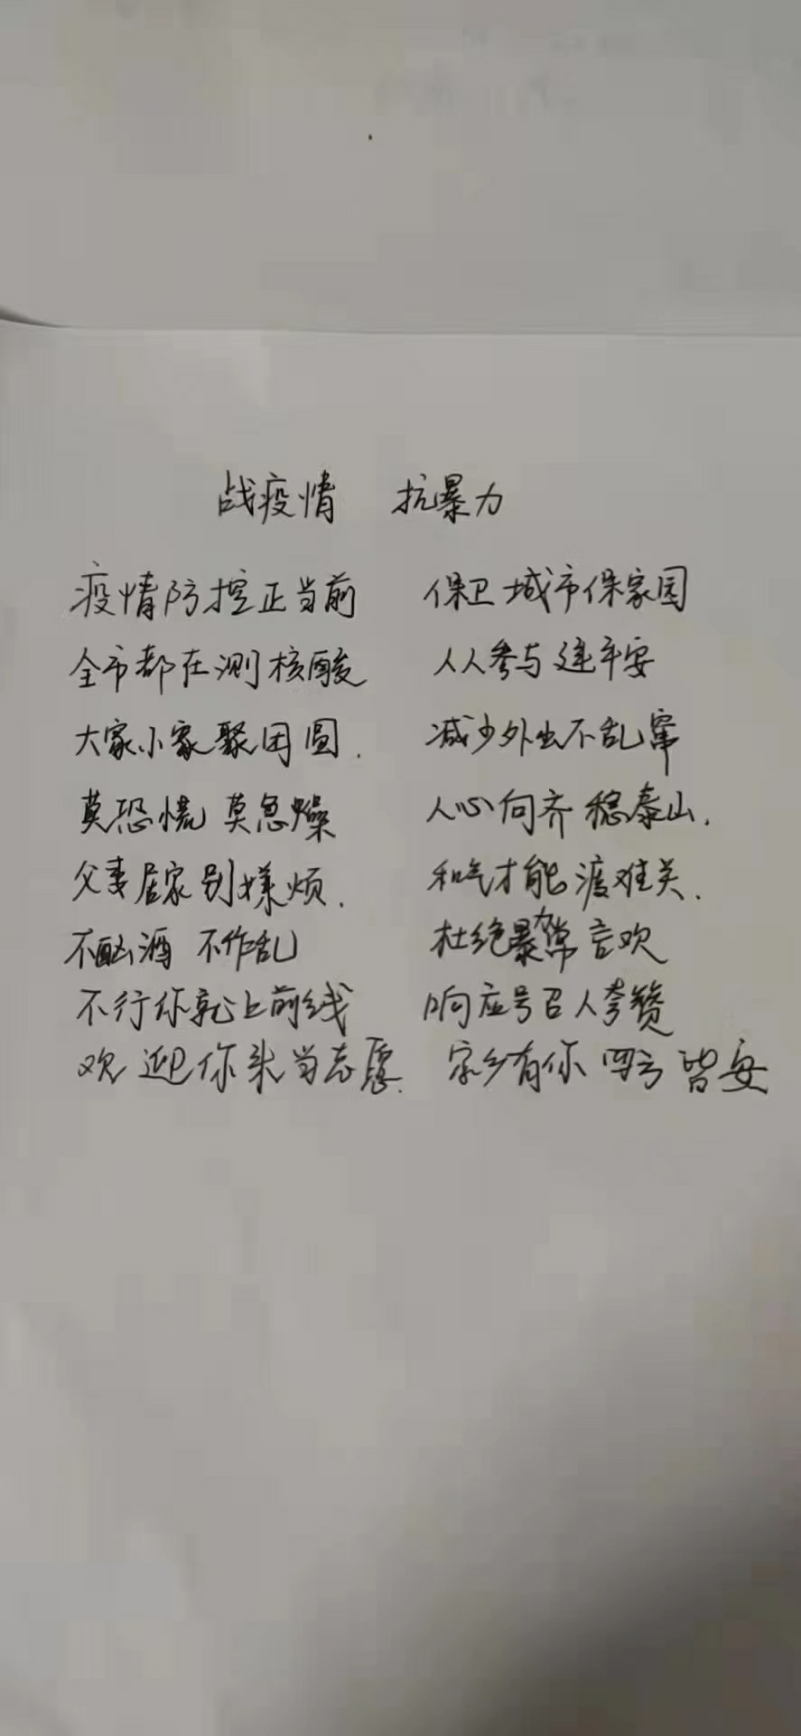 战疫情 抗暴力
疫情防控正当前 保卫城市保家园
全市都在测核酸 人人参与建平安
大家小家聚团圆. 减少外出不乱窜
莫恐慌 莫急燥 人心向齐稳泰山.
父妻居家别嫌烦. 和气才能渡难关.
不酗酒 不作乱 杜绝暴力常言欢
不行你就上前线 响应号召人夸赞
欢迎你来当志愿. 家乡有你 皆安